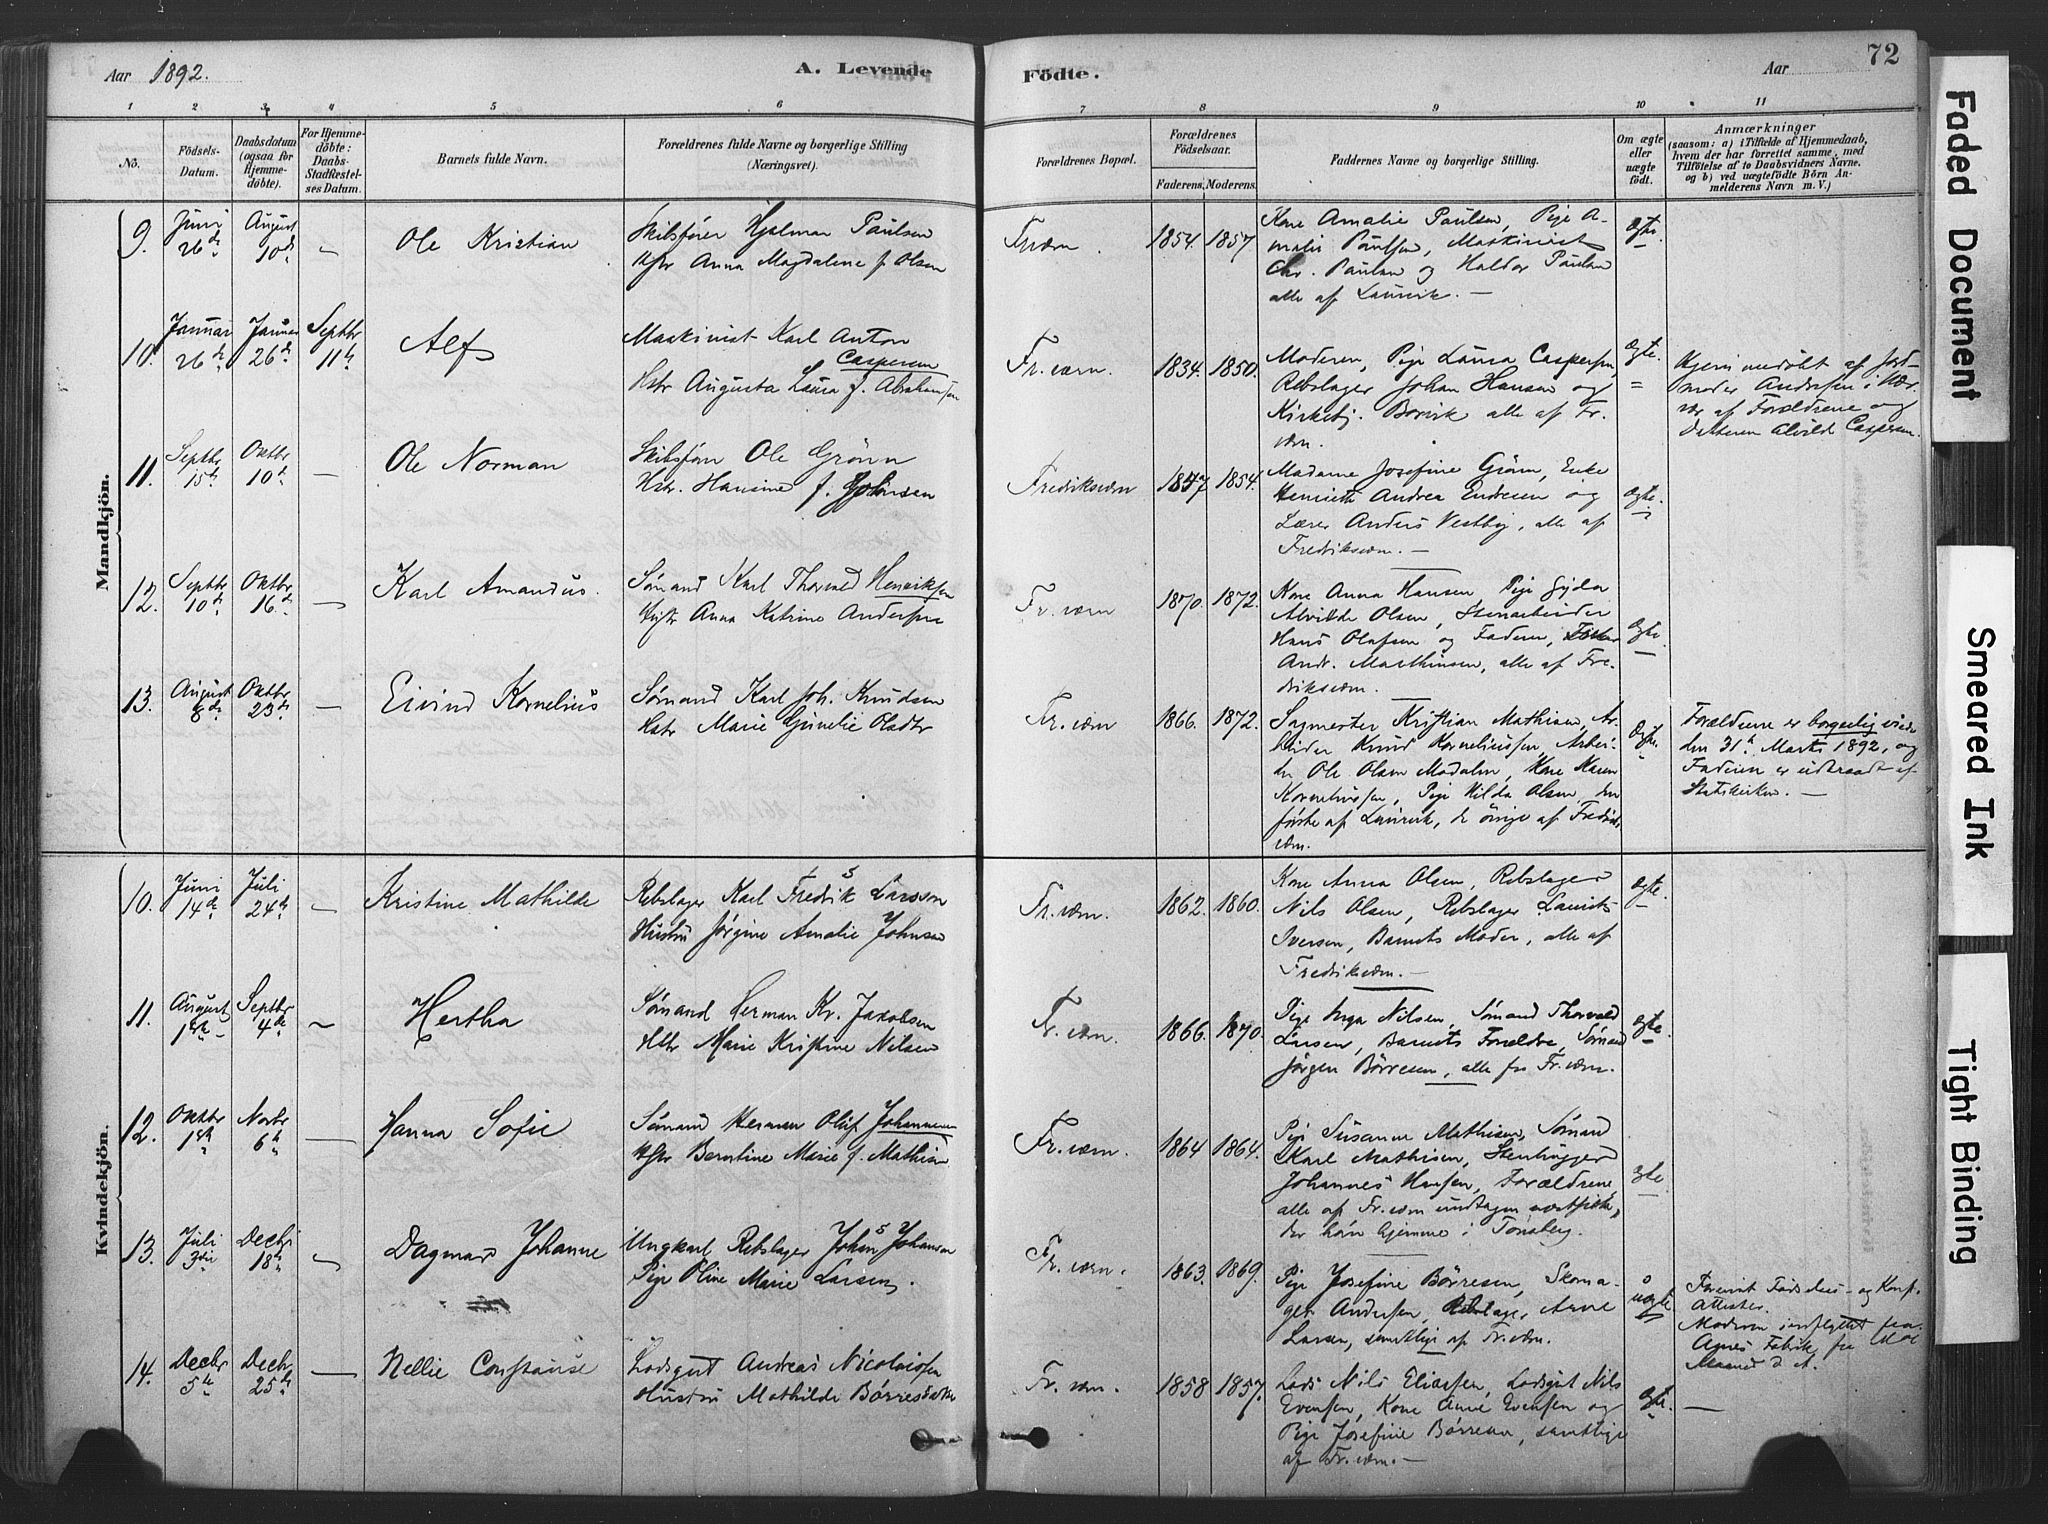 Aar 1892.
A. Levende Födte.
Aar
72
1 2 3 4 5 6 7 8 9 10 11
No.
Födsels-Datum.
Daabsdatum (ogsaa for Hjemme-döbte).
For Hjemme-döbte: Daabs-Stadfæstel-ses Datum.
Barnets fulde Navn.
Forældrenes fulde Navne og borgerlige Stilling (Næringsvei).
Forældrenes Bopæl.
Forældrenes Födselsaar.
Faderens. Moderens.
Faddernes Navne og borgerlige Stilling.
Om ægte eller uægte födt.
Anmærkninger
(saasom: a) i Tilfælde af Hjemmedaab,
hvem der har forrettet samme, med
Tilföielse af to Daabsvidners Navne.
og b) ved uægtefödte Börn An-
melderens Navn m. V.)
Mandkjön.
9. Juni 26de August 10de — Ole Kristian
Skibsfører Hjalmar Paulsen
Hstr Anna Magdalene f. Olsen
Fr.værn. 1854. 1857.
Kone Amalie Paulsen, Pige A-
malie Paulsen, Maskinist
Chr. Paulsen og Haldor Paulsen
alle af Laurvik. —
Ægte.
10. Januar 26de Januar 26de Septbr 11te Alf
Maskinist Karl Anton
Caspersen
Hstr Augusta Laura f. Abrahamsen
Fr.værn. 1834. 1850.
Moderen, Pige Laura Caspersen,
Rebslager Johan Hansen og
Kirkebtj. Borvik alle af Fr.
værn.
Ægte.
Hjemmedøbt af Jord-
moder Andersen i Nær-
vær af Forældrene og
Datteren Alvild Caspersen.
11. Septbr 15de Oktbr 10de — Ole Norman
Skibsfører Ole Grønn
Hstr. Hansine f. Johnsen
Fredriksværn 1847 1854.
Madame Josefine Grønn, Enke
Henriette Andrea Endresen og
Lærer Anders Vestby, alle af
Fredriksværn. —
Ægte.
12. Septbr 10de Oktbr 16de — Karl Amandus.
Sømand Karl Thorvald Henriksen
Hustr Anna Katrine Andersen
Fr.værn 1870. 1872.
Kone Anna Hansen, Pige Gyda
Alvilde Olsen, Stenarbeider
Hans Olafsen og Faderen, Fisker
Andr. Mathinsen, alle af Fre-
driksværn.
Ægte.
13. August 8de Oktbr 23de — Eivind Kornelius
Sømand Karl Joh. Knudsen
Hstr Marie Gunelie Olsdtr
Fr.værn 1866. 1872.
Sagmester Kristian Mathisen, Ar-
beider Knud Korneliussen, Arbei-
der Ole Olsen Modalen, Kone Karen
Korneliussen, Pige Hilda Olsen, den
første af Laurvik, de øvrige af Fredriks-
værn.
Ægte.
Forældrene er borgerlig viede
den 31te Marts 1892, og
Faderen er udtraadt af
Statskirken. —
Kvindekjön.
10. Juni 14de Juli 24de — Kristine Mathilde
Rebslager Karl Fredrik Larsson
Hustru Jørgine Amalie Johnsen
Fr.værn. 1862. 1860.
Kone Anna Olsen, Rebslager
Nils Olsen, Rebslager Laurits
Iversen, Barnets Moder, alle af
Fredriksværn. —
Ægte.
11. August 1ste Septbr 4de — Hertha
Sømand Herman Kr. Jakobsen
Hstr Marie Kristine Nilsen
Fr.værn. 1866. 1870.
Pige Inga Nilsen, Sømand Thorvald
Larsen, Barnets Forældre, Sømand
Jørgen Børresen, alle fra Fr.værn.
Ægte
12. Oktbr 1ste Novbr 6te — Hanna Sofie
Sømand Herman Oluf Johannesen
Hstr Berntine Marie f. Mathisen
Fr.værn. 1864 1864.
Pige Susanne Mathisen, Sømand
Karl Mathisen, Stenhugger
Johannes Hansen, Forældrene
alle af Fr.værn undtagen
der hører hjemme i Tønsberg.
Ægte.
13. Juli 3die Decbr 18de — Dagmar Johanne
Ungkarl Rebslager Johan Johansen
Pige Oline Marie Larsen.
Fr.værn. 1863. 1869.
Pige Josefine Børresen, Skoma-
ger Andersen, Rebslager Arne
Larsen, samtlige af Fr.værn.
uægte
Forevist Fødsels- og Konf.
Attester.
Moderen indflyttet fra
Agnes Fabrik
14. Decbr 5te Decbr 25de — Nellie Constanse
Lodsgut Andreas Nicolaisen
Hustru Mathilde Børresdatter
Fr.værn. 1858 1857.
Lods Nils Eliassen, Lodsgut Nils
Evensen, Kone Anne Evensen og
Pige Josefine Børresen, samtlige
af Fr.værn. —
Ægte.
—
Faded Document
Smeared Ink
Tight Binding